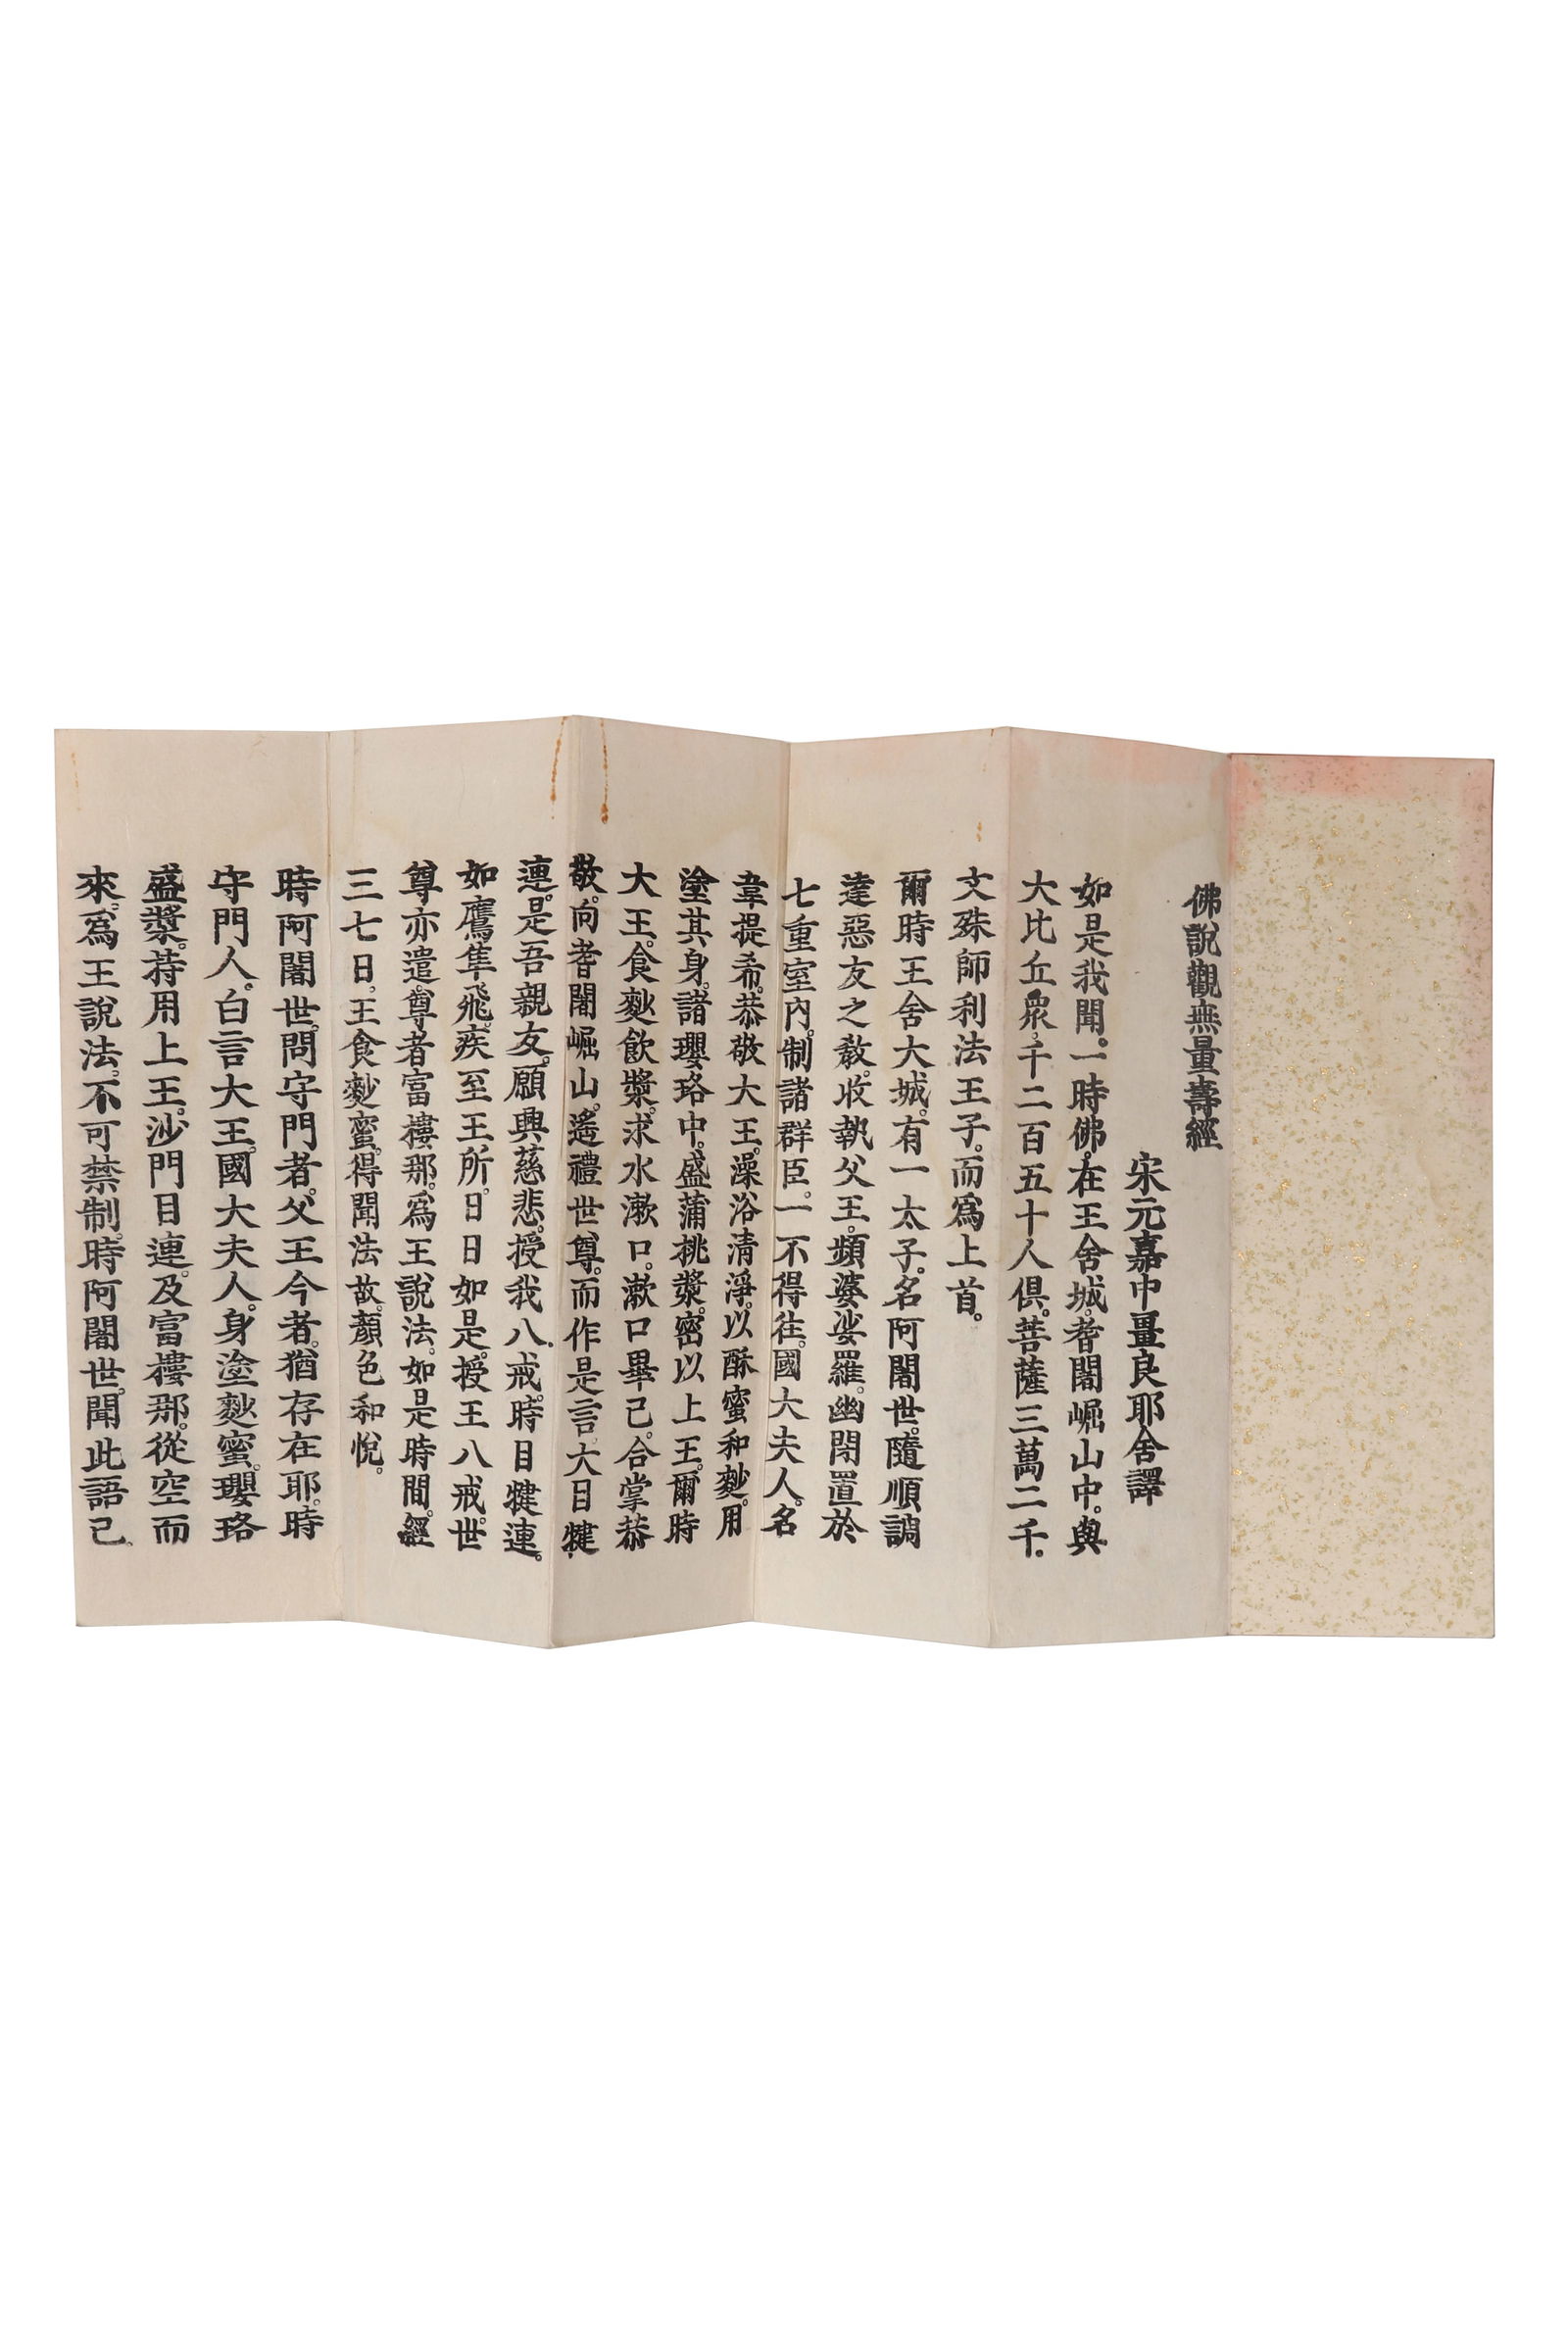 佛說觀無量壽經
宋元嘉中畺良耶舍譯
如是我聞。一時佛。在王舍城。耆闍崛山中。與
大比丘衆。千二百五十人俱。菩薩三萬二千。
文殊師利法王子。而爲上首。
爾時王舍大城。有一太子。名阿闍世。隨順調
達惡友之敎。收執父王。頻婆娑羅。幽閉置於
七重室內。制諸群臣。一不得往。國大夫人。名
韋提希。恭敬大王。澡浴淸淨。以酥蜜和麨。用
塗其身。諸瓔珞中。盛蒲桃漿。密以上王。爾時
大王。食麨飮漿。求水漱口。漱口畢已。合掌恭
敬。向耆闍崛山。遙禮世尊。而作是言。大目犍
連。是吾親友。願興慈悲。授我八戒。時目犍連。
如鷹隼飛。疾至王所。日日如是。授王八戒。世
尊亦遣。尊者富樓那。爲王說法。如是時間。經
三七日。王食麨蜜。得聞法故。顏色和悅。
時阿闍世。問守門者。父王今者。猶存在耶。時
守門人。白言大王。國大夫人。身塗麨蜜。瓔珞
盛漿。持用上王。沙門目連。及富樓那。從空而
來。爲王說法。不可禁制。時阿闍世。聞此語已。